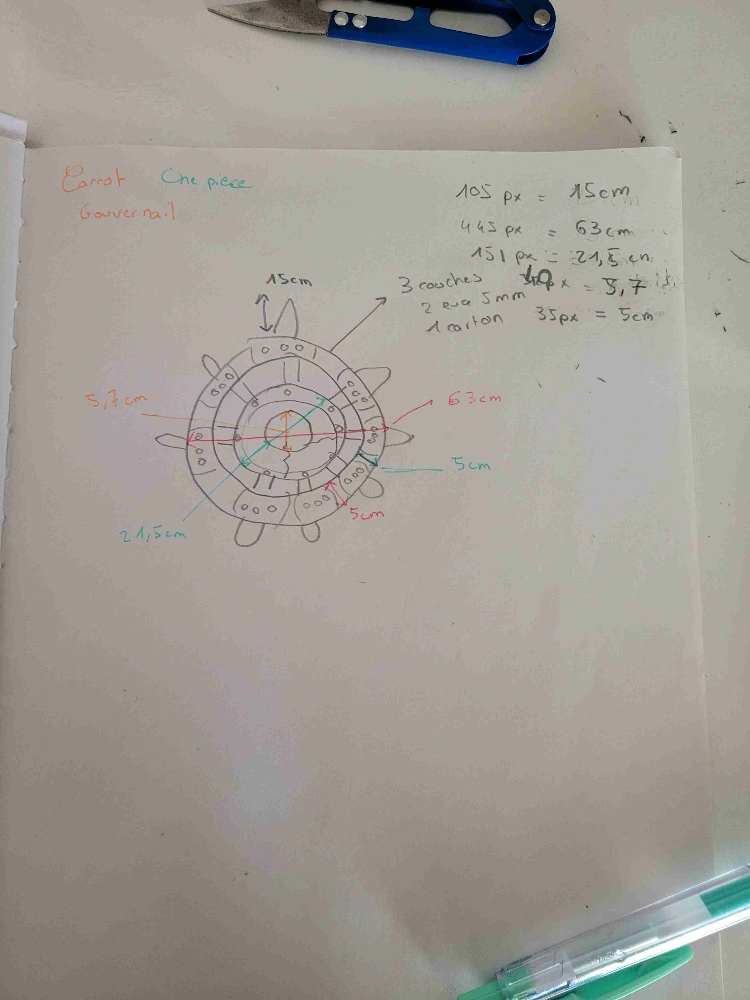 Carrot One piece
Gouvernail
105 px = 15cm
445 px = 63cm
151 px = 21,5 cm
40px = 5,7
35px = 5cm
15cm
3 couches
2 eva 5mm
1 carton
5,7cm
63cm
5cm
5cm
21,5cm